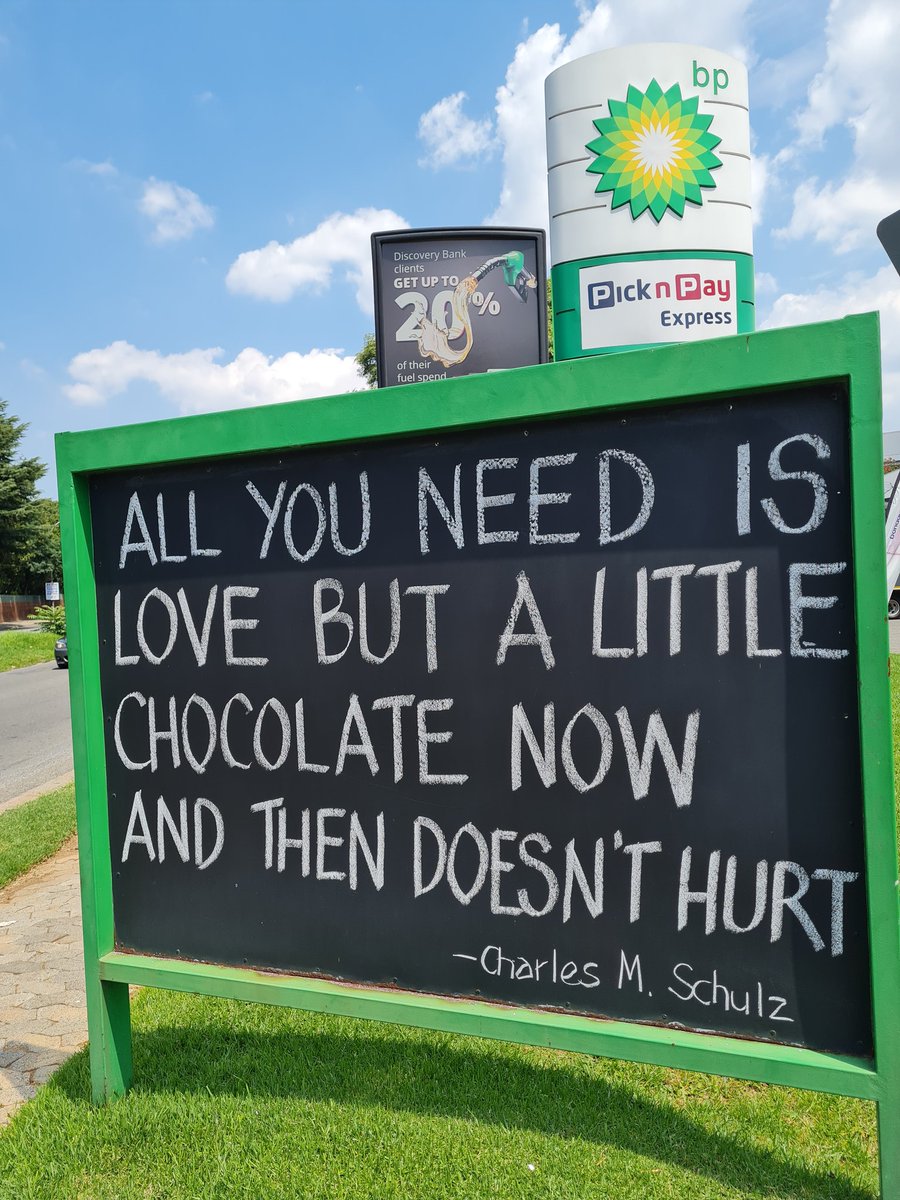 bp
Pick n Pay
Express
Discovery Bank
clients
GET UP TO
20%
of their
fuel spend
ALL YOU NEED IS
LOVE BUT A LITTLE
CHOCOLATE NOW
AND THEN DOESN'T HURT
-Charles M. Schulz